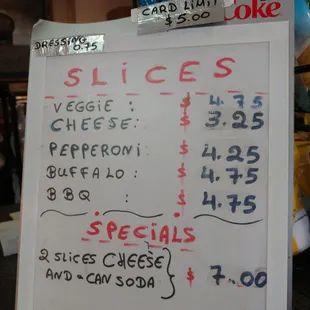 CARD LIMIT
$5.00
Coke
DRESSING
0.75
SLiCES
VEGGIE : $ 4.75
CHEESE: $ 3.25
PEPPERONi: $ 4.25
BUFFALO: $ 4.75
BBQ : $ 4.75
SPECiALS
2 SLICES CHEESE
AND a CAN SODA } $ 7.00